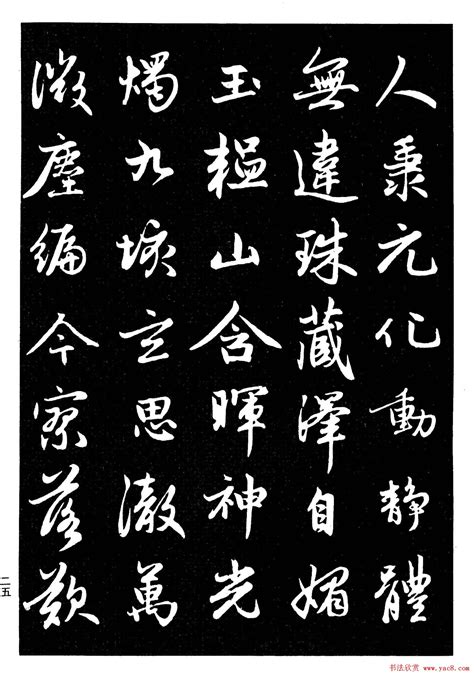 人秉元化動靜體
無違珠藏澤自媚
玉榲山含暉神光
燭九垓玄思澈萬
微塵編今寥落歎
二五
书法欣赏 www.yac8.com